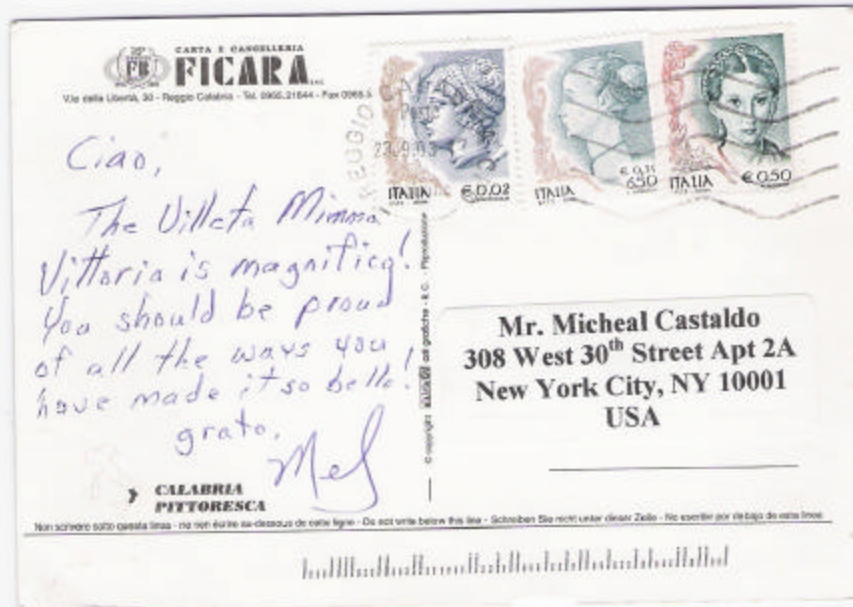 CARTA E CANCELLERIA
FICARA
FB
Via della Libertà, 30 - Reggio Calabria - Tel. 0965.21844 - Fax 0965.
REGGIO CAL
23.9.03
ITALIA €0,02
ITALIA € 0,34 650
ITALIA €0,50
Ciao,
The Villeta Mimma
Vittoria is magnifica!
You should be proud
of all the ways you
have made it so bella!
grato,
Mel
CALABRIA
PITTORESCA
© copyright grafiche - R.C. - Riproduzione
Mr. Micheal Castaldo
308 West 30th Street Apt 2A
New York City, NY 10001
USA
Non scrivere sotto questa linea - ne rien écrire au-dessous de cette ligne - Do not write below this line - Schreiben Sie nicht unter dieser Zeile - No escribir por debajo de esta linea